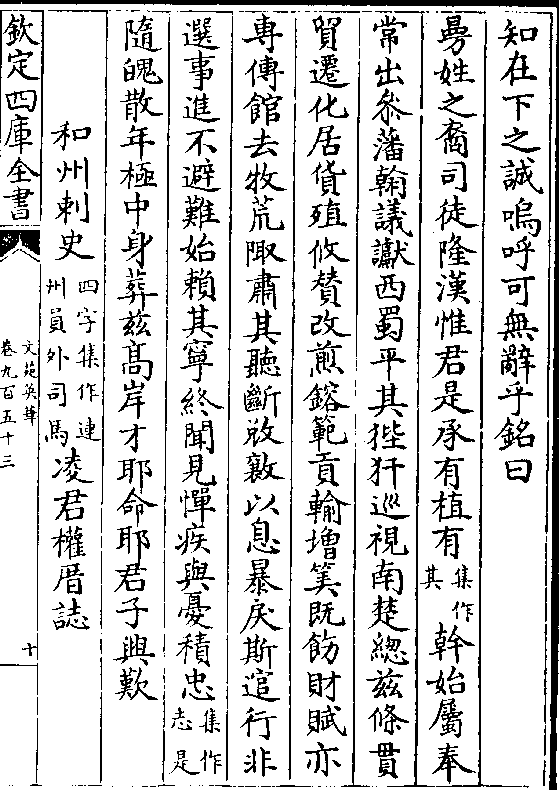 知在下之誠嗚呼可無辭乎銘曰
曼姓之裔司徒隆漢惟君是承有植有集作其幹始屬奉
常出叅藩翰議讞西蜀平其狴犴巡視南楚總兹條貫
貿遷化居貨殖攸賛改煎鎔範貢輸增筭既飭財賦亦
専傳館去牧荒陬肅其聽斷敚敫以息暴戾斯逭行非
選事進不避難始賴其寧終聞見憚疾與憂積忠集作志是
隨魄散年極中身葬兹髙岸才耶命耶君子興歎
和州刺史四字集作連州員外司馬凌君權厝誌
欽定四庫全書
文苑英華
卷九百五十三
十